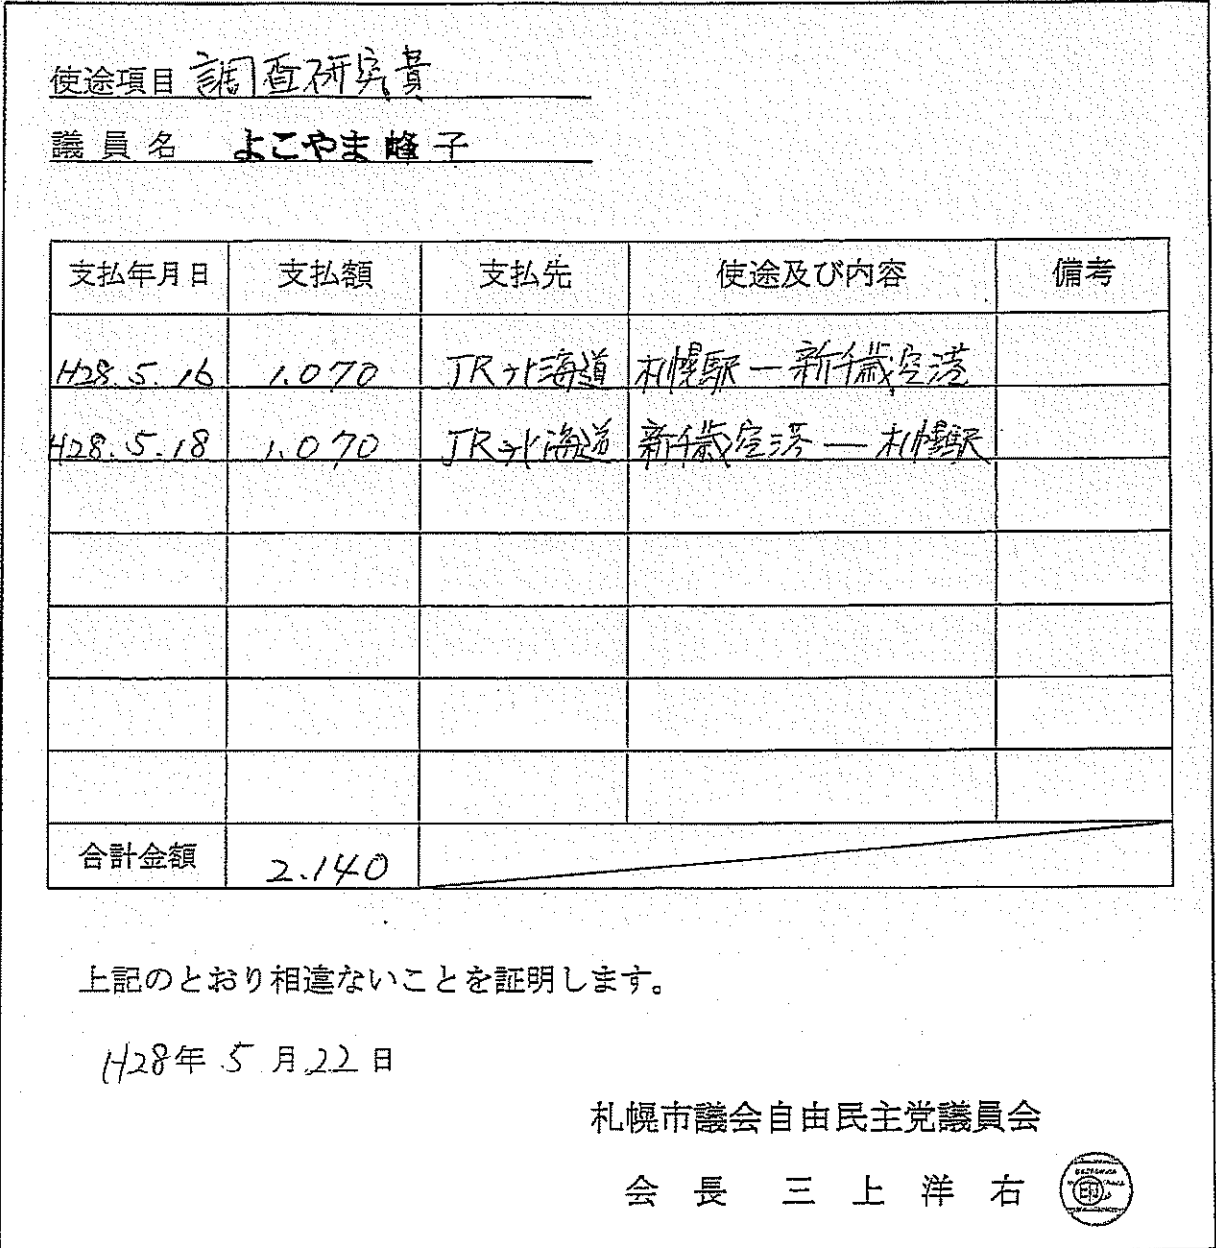 使途項目 調査研究費
議員名 よこやま峰子
支払年月日 支払額 支払先 使途及び内容 備考
H28.5.16 1.070 JR北海道 札幌駅ー新千歳空港
H28.5.18 1.070 JR北海道 新千歳空港ー札幌駅
合計金額 2.140
上記のとおり相違ないことを証明します。
H28年5月22日
札幌市議会自由民主党議員会
会長 三上洋右 印